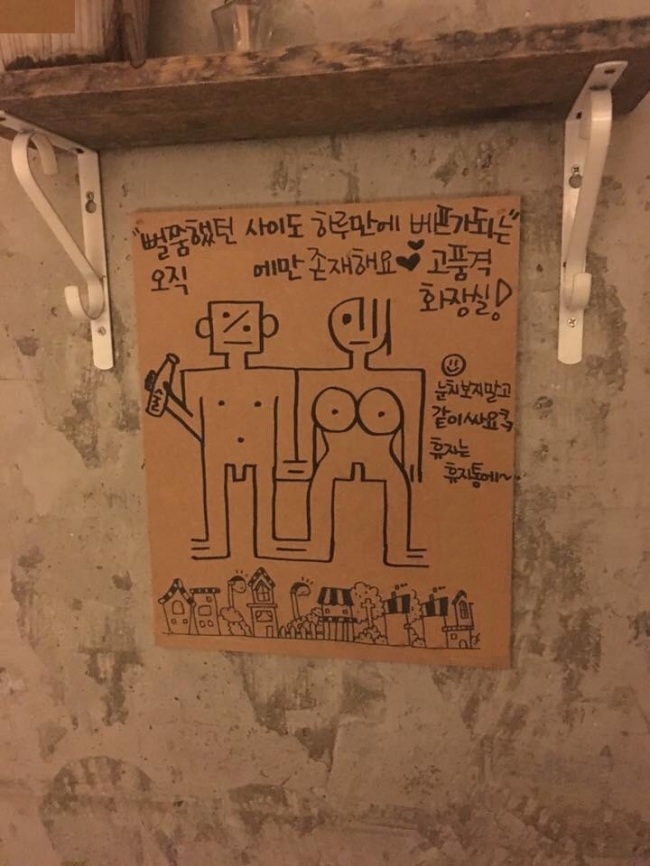 "뻘쭘했던 사이도 하루만에 베프가되는"
오직 에만 존재해요♥ 고품격
화장실!
술
눈치보지말고
같이싸요 쿡
휴지는
휴지통에~